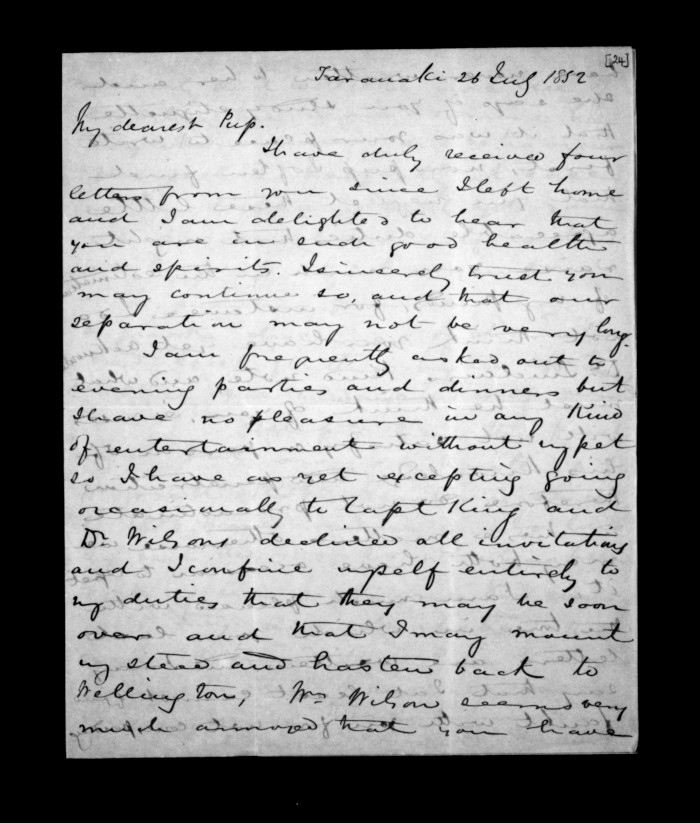 [24]
Taranaki 26 July 1852
My dearest Pup.
I have duly received four
letters from you since I left home
and I am delighted to hear that
you are in such good health
and spirits. I sincerely trust you
may continue so, and that our
separation may not be very long.
I am frequently asked out to
evening parties and dinners but
I have no pleasure in any kind
of entertainment without my pet
so I have as yet excepting going
occasionally to Capt King and
Dr Wilsons declined all invitations
and I confine myself entirely to
my duties that they may be soon
over and that I may mount
my steed and hasten back to
Wellington, Mrs Wilson seemed very
much annoyed that you have